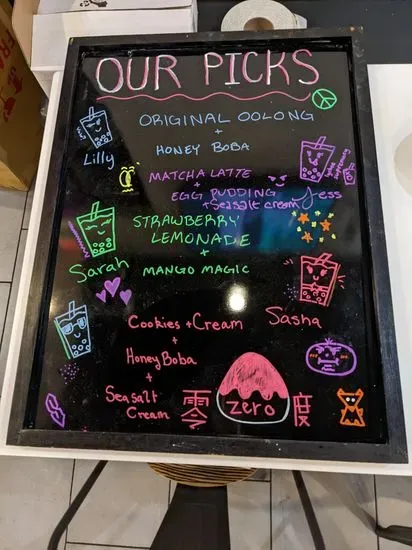 OUR PICKS
ORIGINAL OOLONG
+
HONEY BOBA
Lilly
MATCHA LATTE
+
EGG PUDDING
+ Seasalt cream
Jess
STRAWBERRY
LEMONADE
+
MANGO MAGIC
Sarah
Cookies + Cream
+
Honey Boba
+
Seasalt
Cream
Sasha
零 zero 度